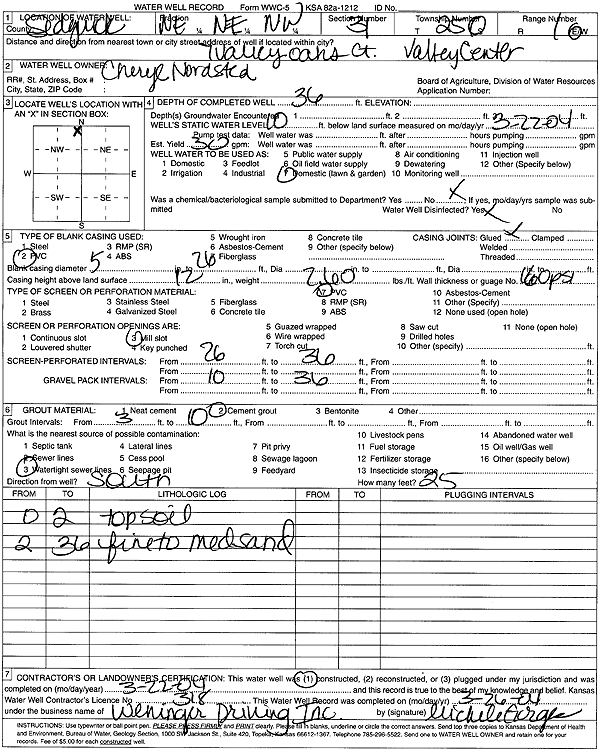 WATER WELL RECORD Form WWC-5 KSA 82a-1212 ID No.
1 LOCATION OF WATER WELL: Fraction Section Number Township Number Range Number
County: Sedgwick NE NE NW 31 T 25 S R E/W
Distance and direction from nearest town or city street address of well if located within city?
Valley Oaks Ct. Valley Center
2 WATER WELL OWNER: Cheryl Nordsted
RR#, St. Address, Box # : Board of Agriculture, Division of Water Resources
City, State, ZIP Code : Application Number:
3 LOCATE WELL'S LOCATION WITH AN "X" IN SECTION BOX:
N
X
NW NE
W E
SW SE
S
4 DEPTH OF COMPLETED WELL 36 ft. ELEVATION:
Depth(s) Groundwater Encountered 1 ft. 2 ft. 3 ft.
WELL'S STATIC WATER LEVEL 10 ft. below land surface measured on mo/day/yr 3-22-04
Pump test data: Well water was ft. after hours pumping gpm
Est. Yield 50 gpm: Well water was ft. after hours pumping gpm
WELL WATER TO BE USED AS: 5 Public water supply 8 Air conditioning 11 Injection well
1 Domestic 3 Feedlot 6 Oil field water supply 9 Dewatering 12 Other (Specify below)
2 Irrigation 4 Industrial 7 Domestic (lawn & garden) 10 Monitoring well
Was a chemical/bacteriological sample submitted to Department? Yes No X ; If yes, mo/day/yrs sample was submitted
Water Well Disinfected? Yes X No
5 TYPE OF BLANK CASING USED: 5 Wrought iron 8 Concrete tile CASING JOINTS: Glued X Clamped
1 Steel 3 RMP (SR) 6 Asbestos-Cement 9 Other (specify below) Welded
2 PVC 4 ABS 7 Fiberglass Threaded
Blank casing diameter 5 in. to 26 ft., Dia in. to ft., Dia in. to ft.
Casing height above land surface 12 in., weight 2.60 lbs./ft. Wall thickness or guage No. 160 psi
TYPE OF SCREEN OR PERFORATION MATERIAL: 7 PVC 10 Asbestos-Cement
1 Steel 3 Stainless Steel 5 Fiberglass 8 RMP (SR) 11 Other (Specify)
2 Brass 4 Galvanized Steel 6 Concrete tile 9 ABS 12 None used (open hole)
SCREEN OR PERFORATION OPENINGS ARE: 5 Guazed wrapped 8 Saw cut 11 None (open hole)
1 Continuous slot 3 Mill slot 6 Wire wrapped 9 Drilled holes
2 Louvered shutter 4 Key punched 7 Torch cut 10 Other (specify) ft.
SCREEN-PERFORATED INTERVALS: From 26 ft. to 36 ft., From ft. to ft.
From ft. to ft., From ft. to ft.
GRAVEL PACK INTERVALS: From 10 ft. to 36 ft., From ft. to ft.
From ft. to ft., From ft. to ft.
6 GROUT MATERIAL: 1 Neat cement 2 Cement grout 3 Bentonite 4 Other
Grout Intervals: From 3 ft. to 10 ft., From ft. to ft., From ft. to ft.
What is the nearest source of possible contamination: 10 Livestock pens 14 Abandoned water well
1 Septic tank 4 Lateral lines 7 Pit privy 11 Fuel storage 15 Oil well/Gas well
2 Sewer lines 5 Cess pool 8 Sewage lagoon 12 Fertilizer storage 16 Other (specify below)
3 Watertight sewer lines 6 Seepage pit 9 Feedyard 13 Insecticide storage
Direction from well? South How many feet? 25
FROM TO LITHOLOGIC LOG FROM TO PLUGGING INTERVALS
0 2 topsoil
2 36 fine to med sand
7 CONTRACTOR'S OR LANDOWNER'S CERTIFICATION: This water well was (1) constructed, (2) reconstructed, or (3) plugged under my jurisdiction and was
completed on (mo/day/year) 3-22-04 and this record is true to the best of my knowledge and belief. Kansas
Water Well Contractor's Licence No 318 This Water Well Record was completed on (mo/day/yr) 3-26-04
under the business name of Weninger Drilling Inc by (signature)
INSTRUCTIONS: Use typewriter or ball point pen. PLEASE PRESS FIRMLY and PRINT clearly. Please fill in blanks, underline or circle the correct answers. Send top three copies to Kansas Department of Health
and Environment, Bureau of Water, Geology Section, 1000 SW Jackson St., Suite 420, Topeka, Kansas 66612-1367. Telephone 785-296-5522. Send one to WATER WELL OWNER and retain one for your
records. Fee of $5.00 for each constructed well.